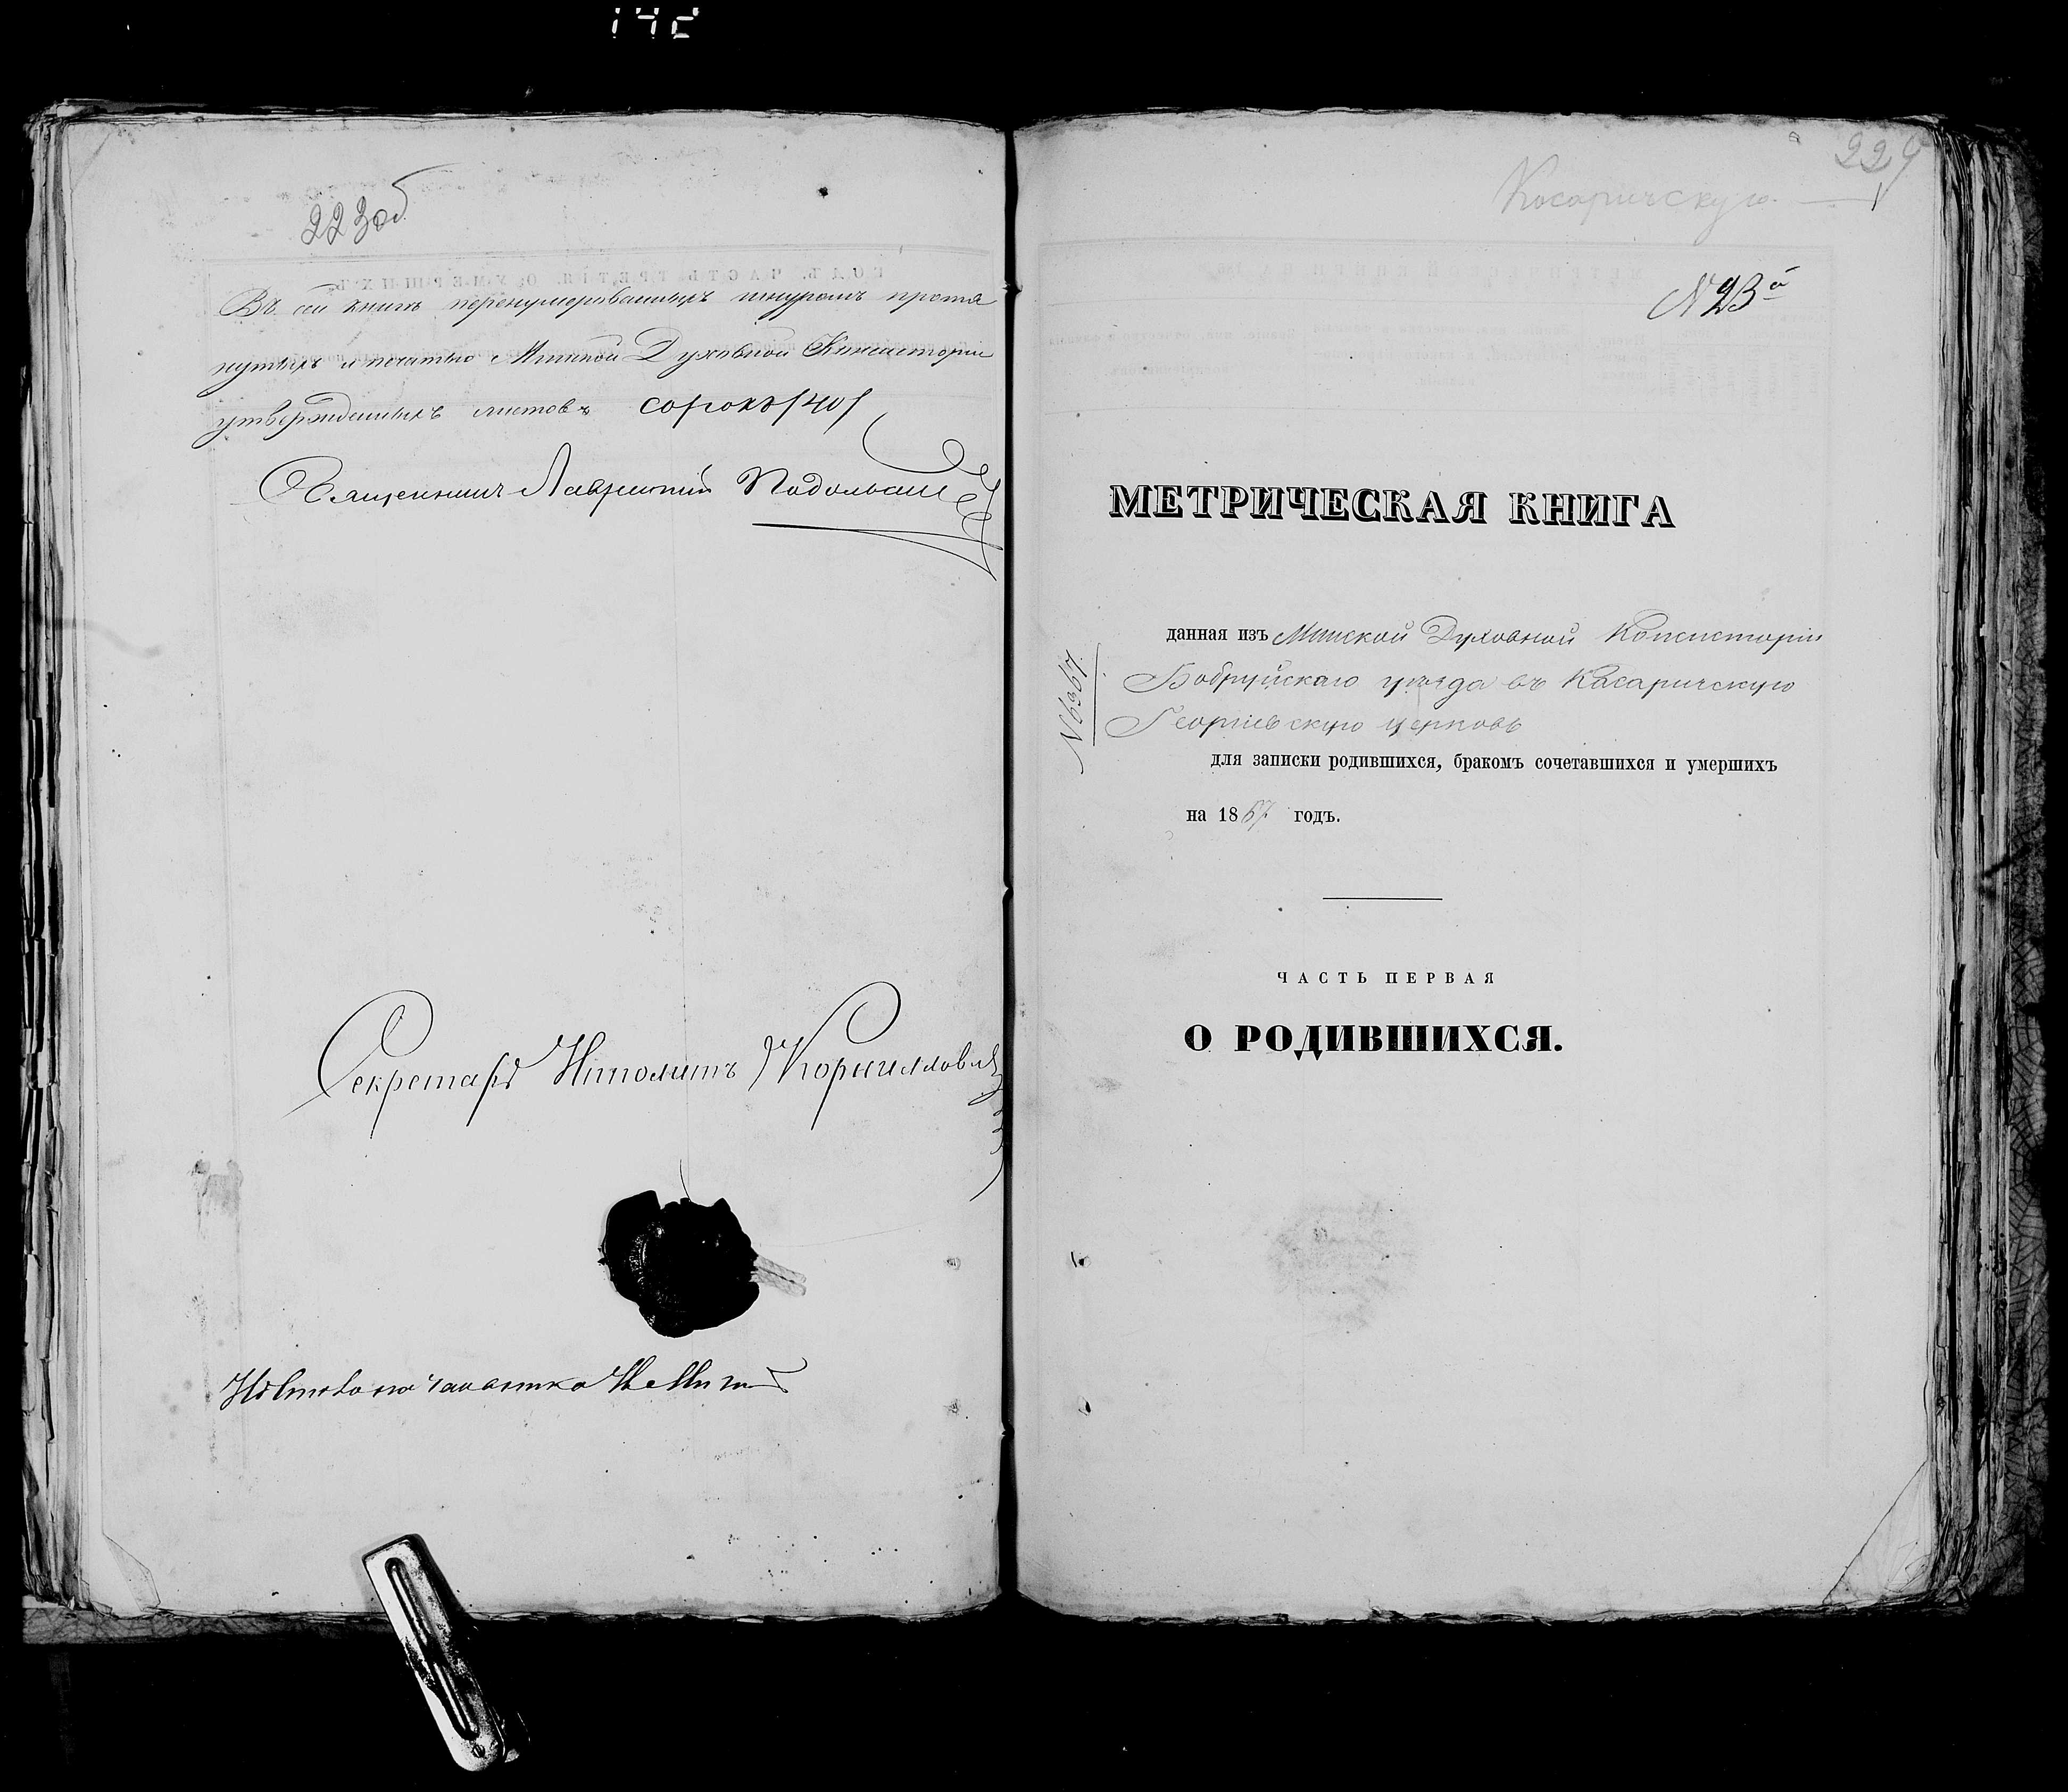 223об
Въ сей книгѣ перенумерованныхъ шнуромъ протя
нутыхъ и печатью Минской Духовной Консисторіи
утвержденныхъ листовъ сорокъ /40/
Священникъ Лаврентій
Секретарь Корнилловъ
Косаричскую
N 23й
МЕТРИЧЕСКАЯ КНИГА
данная изъ Минской Духовной Консисторіи
Бобруйскаго уѣзда въ Касаричскую
Георгіевскую церковь
для записки родившихся, бракомъ сочетавшихся и умершихъ
на 1867 годъ.
ЧАСТЬ ПЕРВАЯ
О РОДИВШИХСЯ.